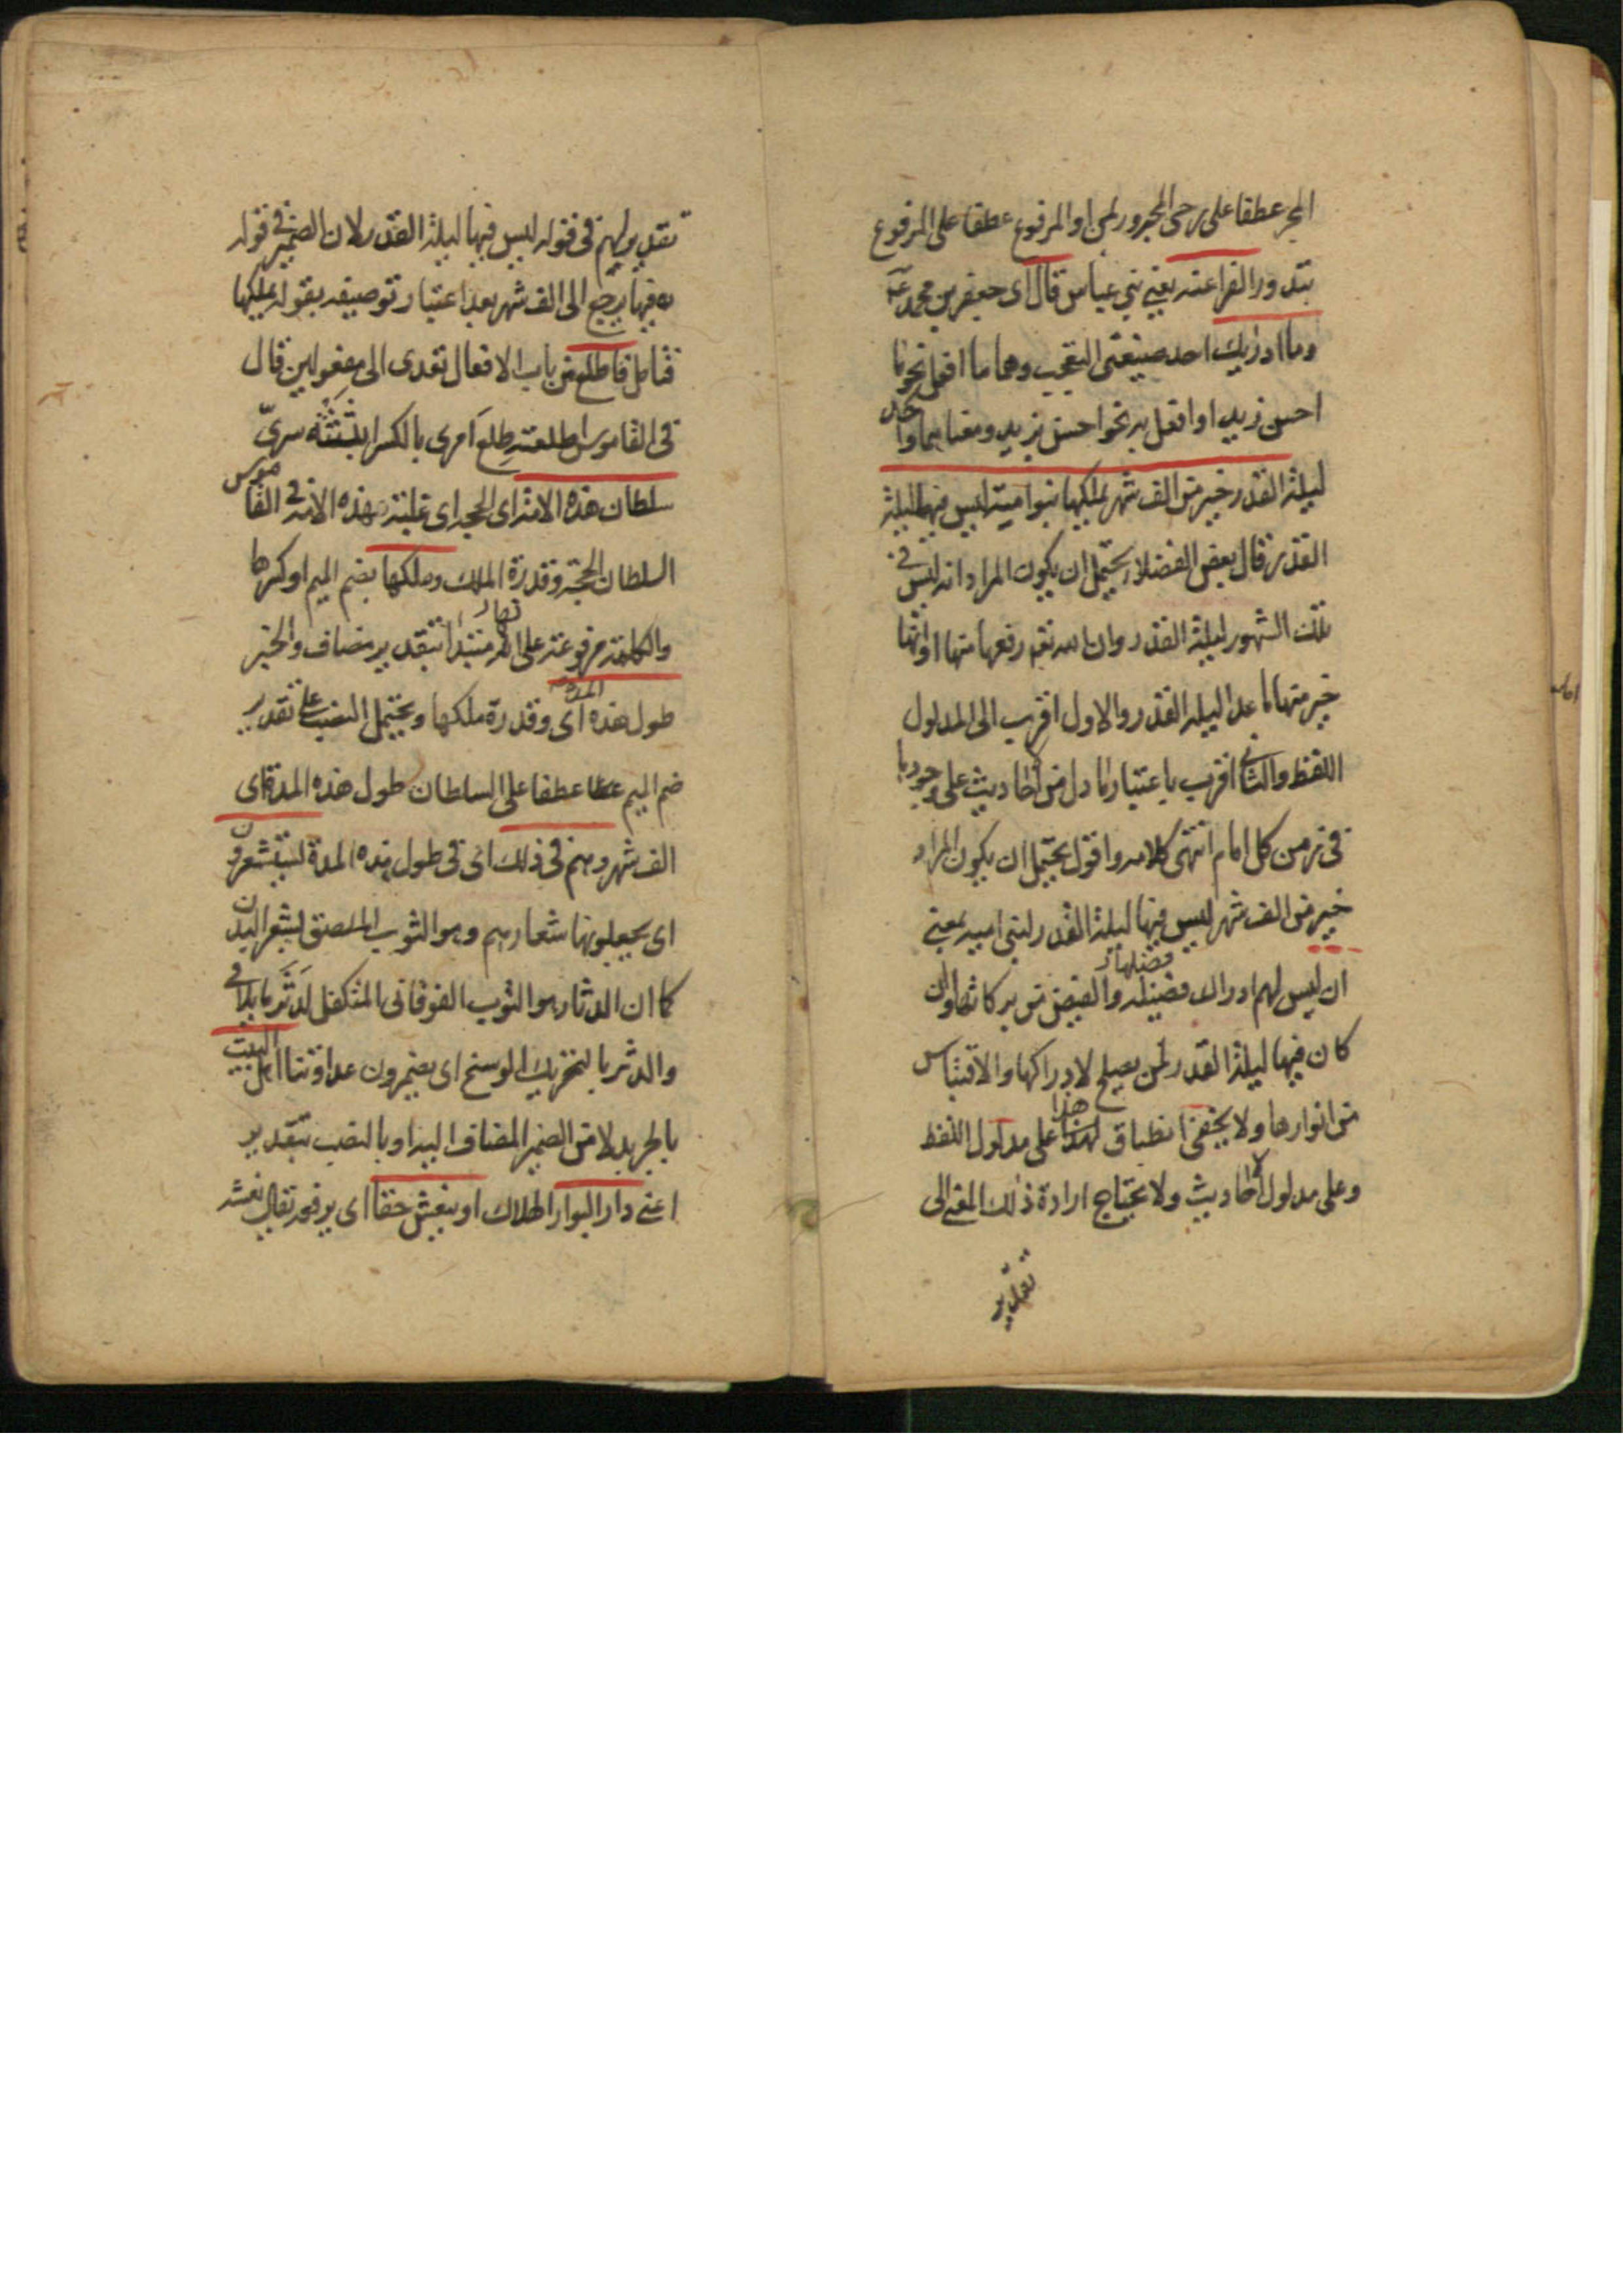 الجر عطفا على رحى المجرور لمن او المرفوع عطفا على المرفوع
بتدور الفراعنة يعني بني عباس قال اى جعفر بن محمد ع
وما ادريك احد صيغتى التعجب وهما ما افعل نحو ما
احسن زيدا وافعل به نحو احسن بزيد ومعناهما واحد
ليلة القدر خير من الف شهر يملكها بنوا امية ليس فيها ليلة
القدر قال بعض الفضلاء يحتمل ان يكون المراد انه ليس في
تلك الشهور ليلة القدر وان الله تعالى رفعها منها او انها
خير منها ما عدا ليلة القدر والاول اقرب الى المدلول
اللفظ والثاني اقرب باعتبار ما دل من الاحاديث على وجودها
في زمن كل امام انتهى كلامه واقول يحتمل ان يكون المراد
خير من الف شهر ليس فيها ليلة القدر لبني امية بمعنى
ان ليس لهم ادراك فضيلة فضلها والفيض من بركاتها وان
كان فيها ليلة القدر لمن يصلح لادراكها والاقتباس
من انوارها ولا يخفى انطباق هذا على مدلول اللفظ
وعلى مدلول الاحاديث ولا يحتاج ارادة ذلك المعنى الى
تقدير
تقدير لهم في قوله ليس فيها ليلة القدر لان الضمير في قوله
فيها يرجع الى الف شهر بعد اعتبار توصيفه بقوله يملكها
فتامل فاطلع من باب الافعال تعدى الى مفعولين قال
في القاموس اطلعته طلع امرى بالكسر ابثثته سرى
سلطان هذه الامة اى الحجة اى غلبة هذه الامة في القاموس
السلطان الحجة وقدرة الملك وملكها بضم الميم او كسرها
والكلمة مرفوعة على انها مبتدأ بتقدير مضاف والخبر
طول هذه المدة اى وقدرة ملكها ويحتمل النصب على تقدير
ضم الميم عطفا على السلطان طول هذه المدة اى
الف شهر وهم في ذلك اى في طول هذه المدة ليستشعرون
اى يجعلونها شعارهم وهو الثوب الملصق لشعر البدن
كما ان الدثار هو الثوب الفوقانى المتكفل لدثر ما بلا في
والدثر بالتحريك الوسخ اى يضمرون عداوتنا اهل البيت
بالجر بدلا من الضمير المضاف اليه او بالنصب بتقدير
اعنى دار البوار الهلاك او ينعش حقا اى يرفعه يقال نعشه